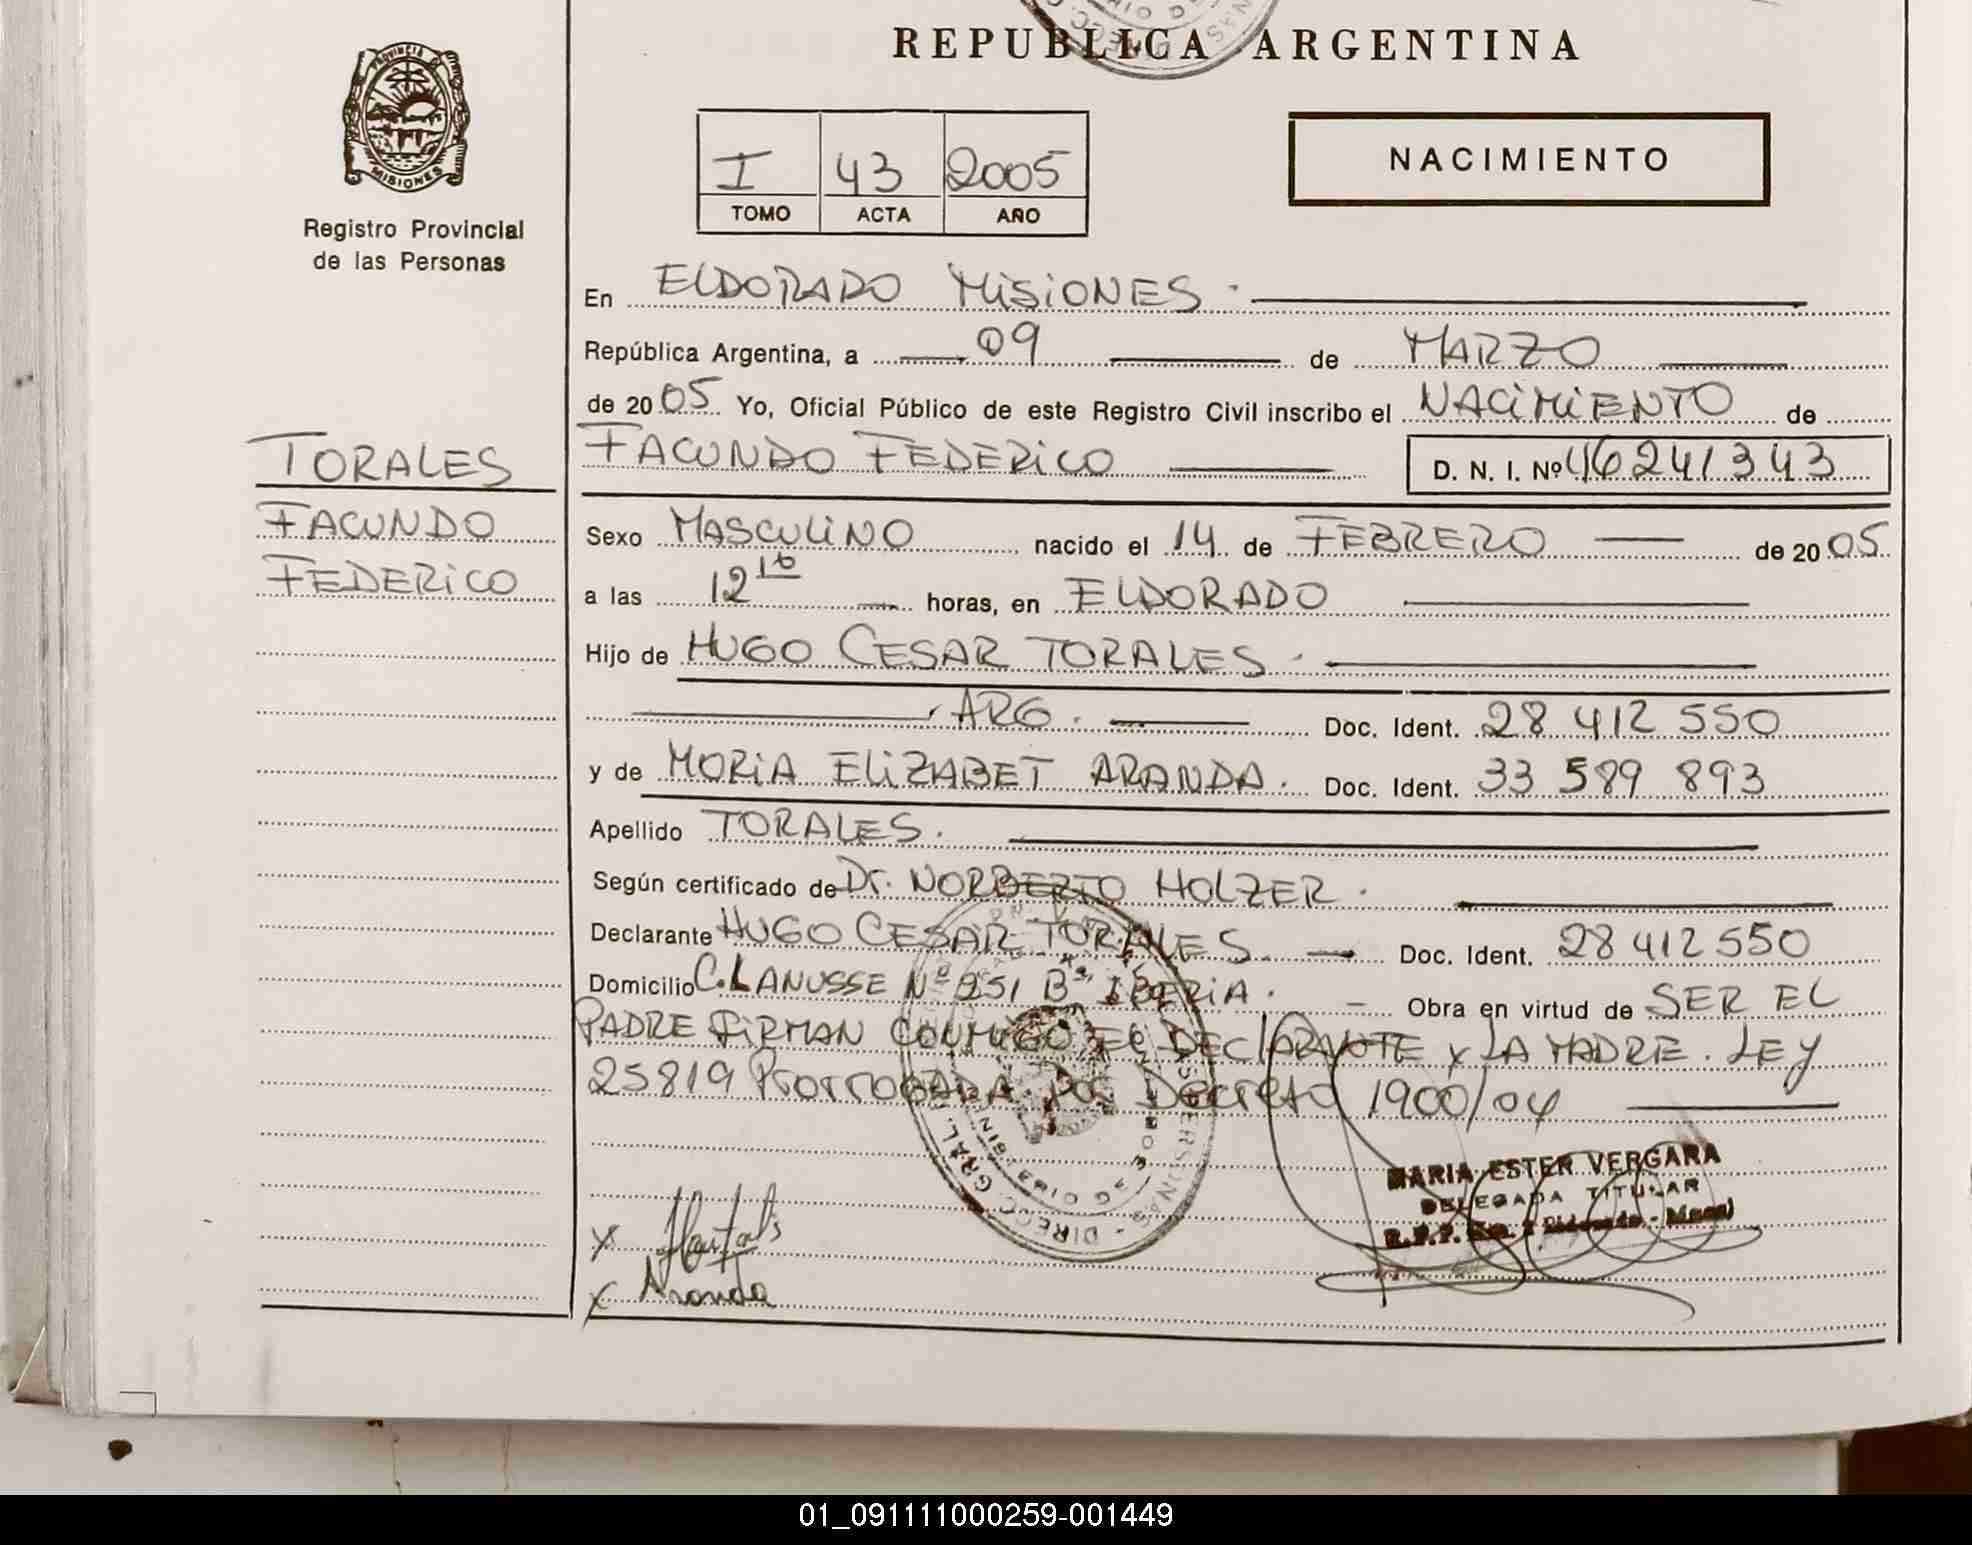 REPUBLICA ARGENTINA
PROVINCIA
MISIONES
Registro Provincial
de las Personas
I 43 2005
TOMO ACTA AÑO
NACIMIENTO
En ELDORADO MISIONES.
República Argentina, a 09 de MARZO
de 2005 Yo, Oficial Público de este Registro Civil inscribo el NACIMIENTO de
TORALES
FACUNDO
FEDERICO
FACUNDO FEDERICO D. N. I. Nº 46241343
Sexo MASCULINO nacido el 14 de FEBRERO de 2005
a las 12 10 horas, en ELDORADO
Hijo de HUGO CESAR TORALES.
ARG. Doc. Ident. 28 412 550
y de MORIA ELIZABET ARANDA. Doc. Ident. 33 589 893
Apellido TORALES.
Según certificado de Dr. NORBERTO HOLZER.
Declarante HUGO CESAR TORALES. Doc. Ident. 28 412 550
Domicilio C. LANUSSE Nº 951 Bº IBERIA. Obra en virtud de SER EL
PADRE FIRMAN CONMIGO EL DECLARANTE Y LA MADRE. LEY
25819 Prorrogada por Decreto 1900/04
MARIA ESTER VERGARA
DELEGADA TITULAR
R.P.P.
X
X Aranda
DIRECC. GRAL.
01_091111000259-001449